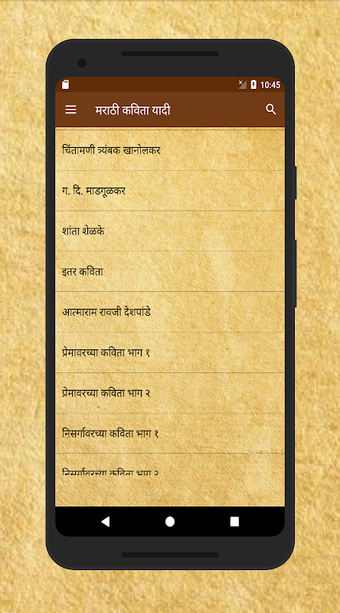 10:45
मराठी कविता यादी
चिंतामणी त्र्यंबक खानोलकर
ग. दि. माडगूळकर
शांता शेळके
इतर कविता
आत्माराम रावजी देशपांडे
प्रेमावरच्या कविता भाग १
प्रेमावरच्या कविता भाग २
निसर्गावरच्या कविता भाग १
निसर्गावरच्या कविता भाग २